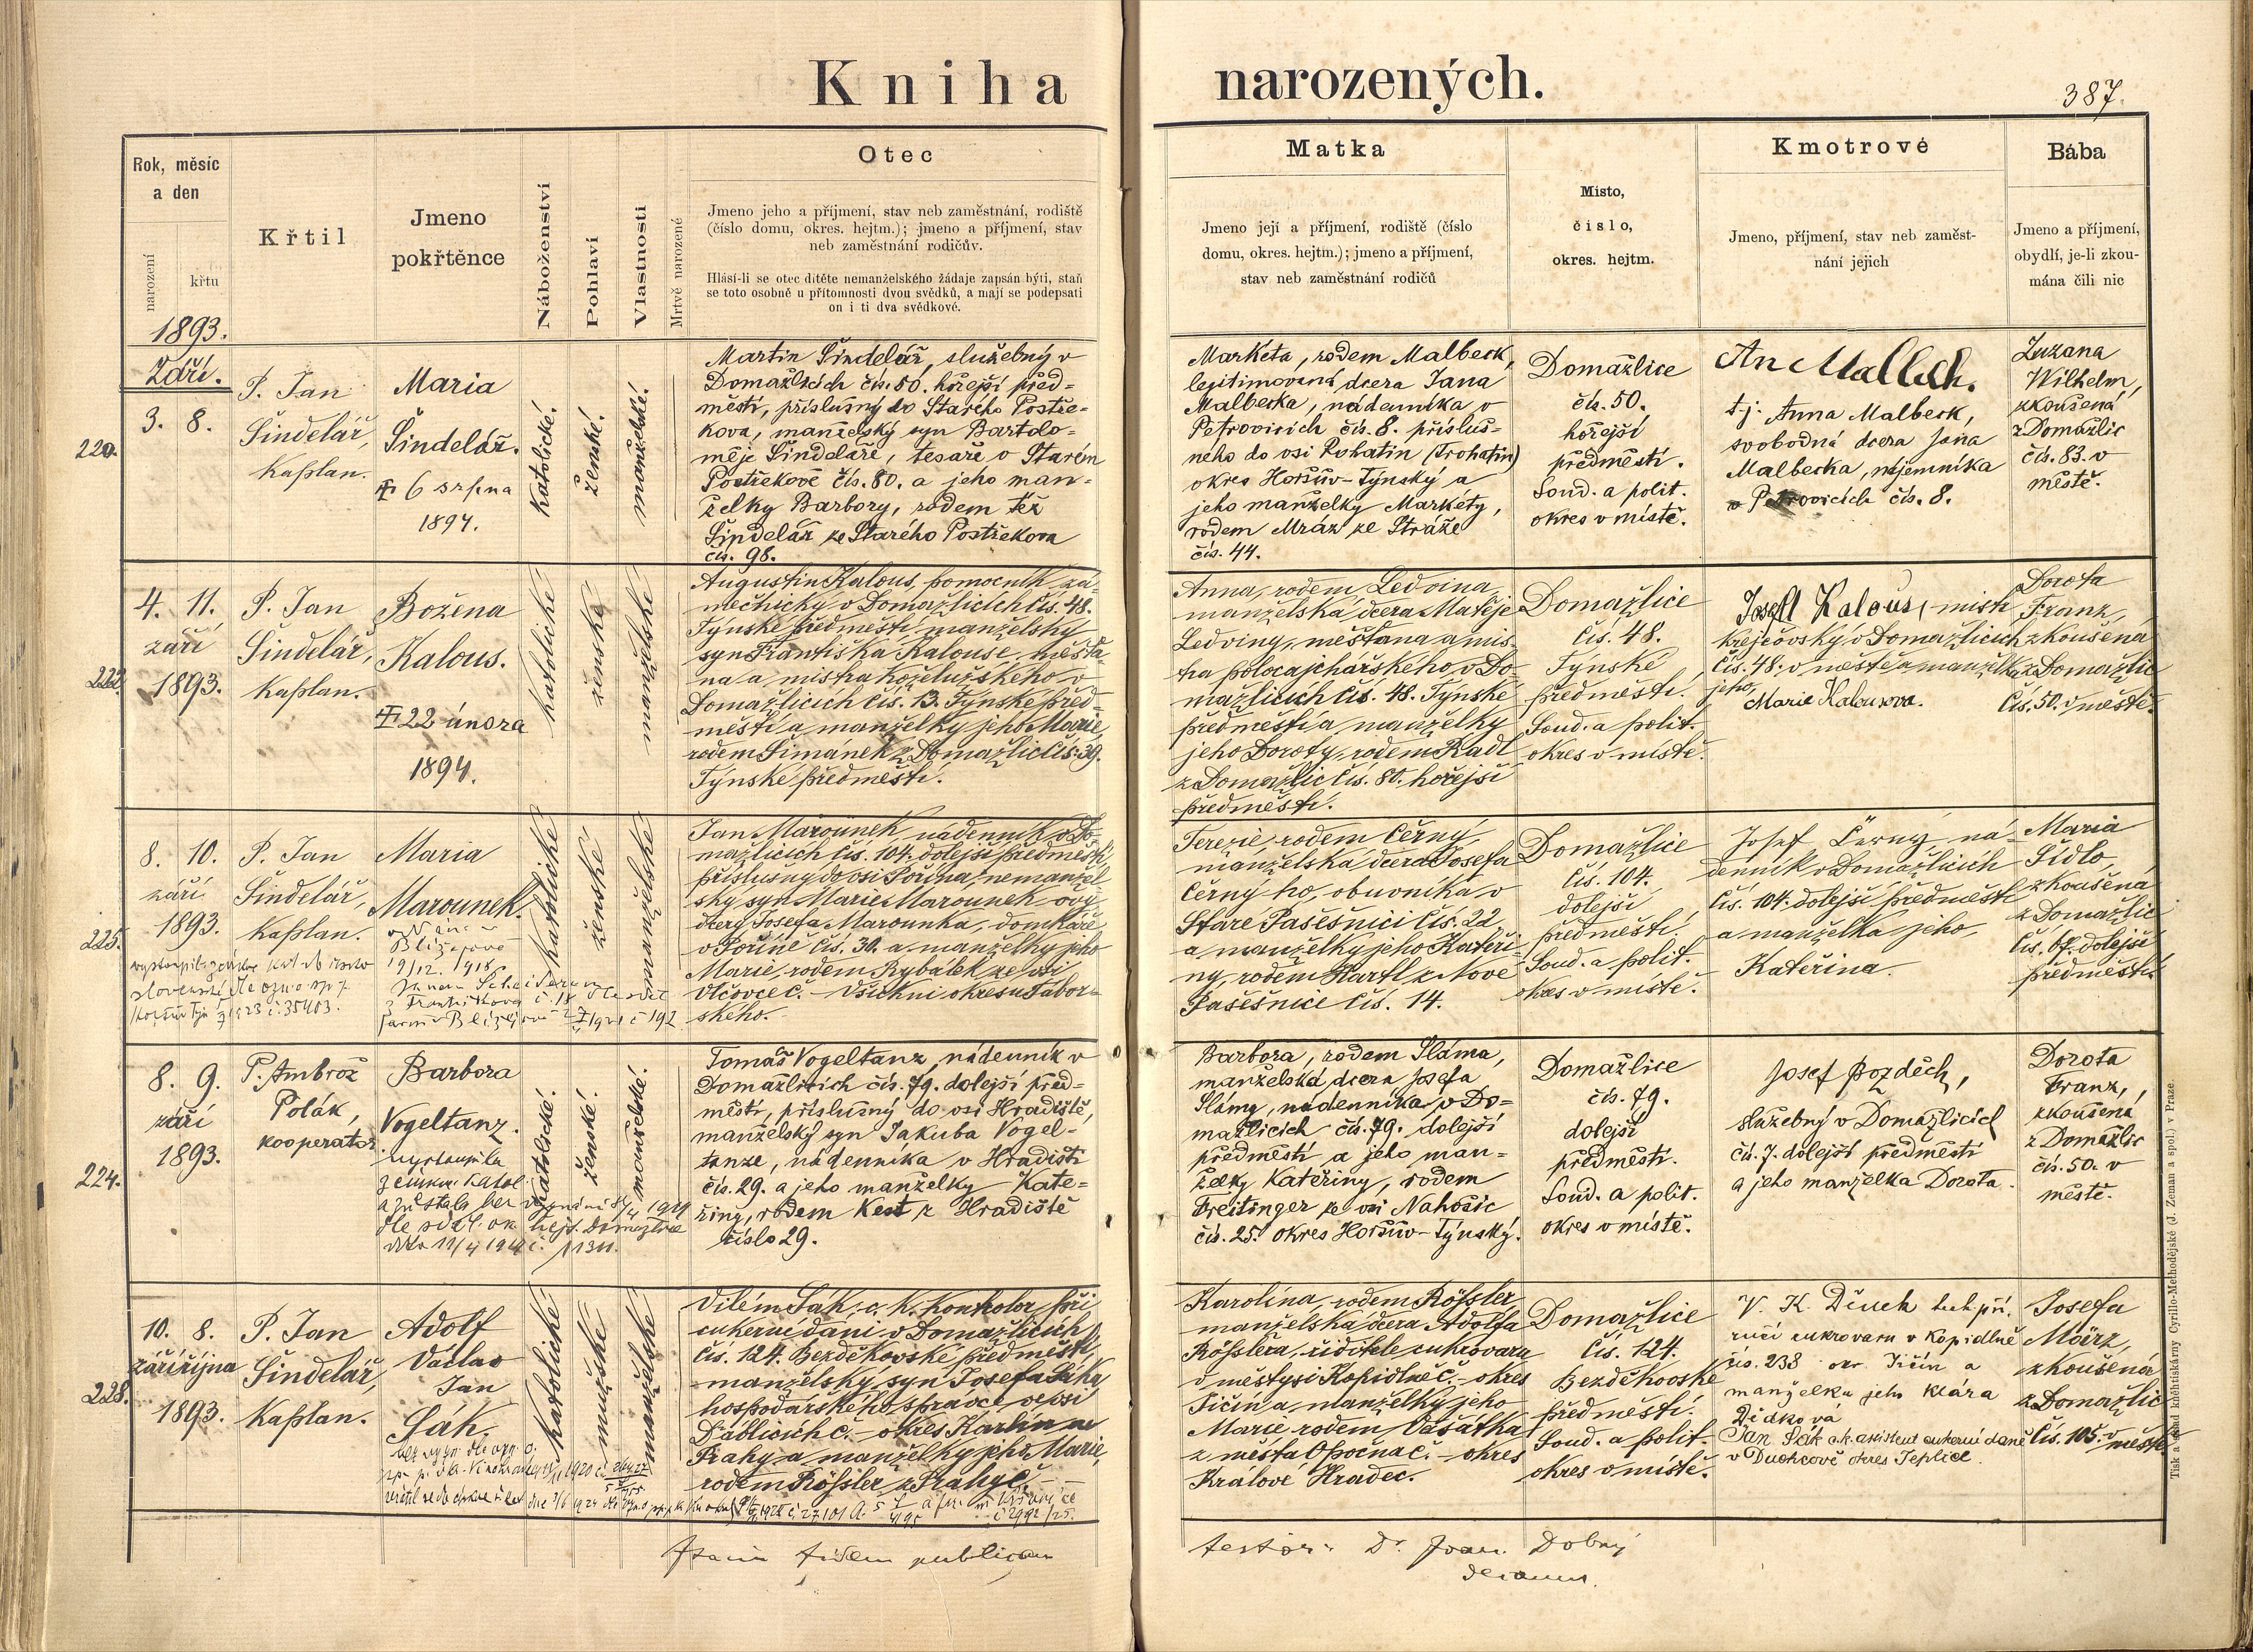 Kniha narozených.
387.
Rok, měsíc
a den
narození
křtu
Křtil
Jmeno
pokřtěnce
Náboženství
Pohlaví
Vlastnosti
Mrtvě narozené
Otec
Jmeno jeho a příjmení, stav neb zaměstnání, rodiště
(číslo domu, okres. hejtm.); jmeno a příjmení, stav
neb zaměstnání rodičův.
Hlásí-li se otec dítěte nemanželského žádaje zapsán býti, staň
se toto osobně u přítomnosti dvou svědků, a mají se podepsati
on i ti dva svědkové.
Matka
Jmeno její a příjmení, rodiště (číslo
domu, okres. hejtm.); jmeno a příjmení,
stav neb zaměstnání rodičů
Misto,
číslo,
okres. hejtm.
Kmotrové
Jmeno, příjmení, stav neb zaměst-
nání jejich
Bába
Jmeno a příjmení,
obydlí, je-li zkou-
mána čili nic
1893.
Září.
220.
3. 8.
P. Jan
Šindelář,
Kaplan.
Maria
Šindelář.
6 srpna
1894.
katolické.
ženské.
manželské.
Martin Šindelář, služebný v
Domažlicích čís. 50. hořejší před-
městí, příslušný do Starého Postře-
kova, manželský syn Bartolo-
měje Šindeláře, tesaře v Starém
Postřekově čís. 80. a jeho man-
želky Barbory, rodem též
Šindelář ze Starého Postřekova
čís. 98.
Markéta, rodem Malbeck,
legitimovaná dcera Jana
Malbecka, nádenníka v
Petrovicích čís. 8. přísluš-
neho do vsi (Trohatin)
okres Horšův-Týnský a
jeho manželky Markéty,
rodem Mráz ze Stráže
čís. 44.
Domažlice
čís. 50.
hořejší
předměstí.
Soud. a polit.
okres v místě.
t.j. Anna Malbeck,
svobodná dcera Jana
Malbecka, nájemníka
v Petrovicích čís. 8.
Zuzana
Wilhelm,
zkoušená
z Domažlic
čís. 83. v
městě.
4. 11.
září
1893.
P. Jan
Šindelář,
Kaplan.
Božena
Kalous.
22 února
1894.
katolické
ženské
manželské
Augustin Kalous, pomocník zá-
mečnický v Domažlicích čís. 48.
Týnské předměstí manželský
syn Františka Kalouse, měšťa-
na a mistra koželužského v
Domažlicích čís. 13. Týnské před-
městí a manželky jeho Marie,
rodem Šimánek z Domažlic čís. 39.
Týnské předměstí.
Anna, rodem Ledvina
manželská dcera Matěje
Ledviny, měšťana a mis-
tra v Do-
mažlicích čís. 48. Týnské
předměstí a manželky
jeho Doroty, rodem Radl
z Domažlic čís. 80. hořejší
předměstí.
Domažlice
čís. 48.
Týnské
předměstí.
Soud. a polit.
okres v místě.
Josef Kalous, mistr
krejčovský v Domažlicích
čís. 48. v městě a manželka
jeho,
Marie Kalousova.
Dorota
Franz,
zkoušená
z Domažlic
čís. 50. v městě.
225.
8. 10.
září
1893.
P. Jan
Šindelář,
Kaplan.
Maria
Marounek.
Blížejově
19/12. 1918
katolické
ženské
manželské
Jan Marounek, nádenník v Do-
mažlicích čís. 104. dolejší předměstí,
příslušný do vsi Pořína, nemanžel-
ský syn Marie Marounek ovd.
dcery Josefa Marounka, domkáře
v Poříně čís. 30. a manželky jeho
Marie, rodem Rybáček ze vsi
Vlčovce č. – Všichni okresu Tábor-
ského.
Terezie, rodem Černý,
manželská dcera Josefa
Černýho, obuvníka v
Staré Pasečnici čís. 22
a manželky jeho Kateři-
ny, rodem Hartl z Nové
Pasečnice čís. 14.
Domažlice
čís. 104.
dolejší
předměstí.
Soud. a polit.
okres v místě.
Josef Černý, ná-
denník v Domažlicích
čís. 104. dolejší předměstí
a manželka jeho
Kateřina.
Maria
Šídlo,
zkoušená
z Domažlic
čís. 67. dolejší
předměstí.
224.
8. 9.
září
1893.
P. Ambrož
Polák,
kooperator.
Barbora
Vogeltanz.
vystoupila
z církve katol.
katolické.
ženské.
manželské.
Tomáš Vogeltanz, nádenník v
Domažlicích čís. 79. dolejší před-
městí, příslušný do vsi Hradiště,
manželský syn Jakuba Vogel-
tanze, nádenníka v Hradišti
čís. 29. a jeho manželky Kate-
řiny, rodem Kest z Hradiště
číslo 29.
Barbora, rodem Sláma,
manželská dcera Josefa
Slámy, nádenníka v Do-
mažlicích čís. 79. dolejší
předměstí a jeho man-
želky Kateřiny, rodem
Freitinger ze vsi Nahošic
čís. 25. okres Horšův-Týnský.
Domažlice
čís. 79.
dolejší
předměstí.
Soud. a polit.
okres v místě.
Josef Pozděch,
služebný v Domažlicích
čís. 7. dolejší předměstí
a jeho manželka Dorota.
Dorota
Franz,
zkoušená
z Domažlic
čís. 50. v
městě.
228.
10. 8.
září října
1893.
P. Jan
Šindelář,
Kaplan.
Adolf
Václav
Jan
Sák.
katolické
mužské
manželské
Vilém Sák, c. k. kontrolor při
cukerní dani v Domažlicích
čís. 124. Bezděkovské předměstí,
manželský syn Josefa Sáka
hospodářského správce ve vsi
Ďáblicích č. – okres Karlín u
Prahy a manželky jeho Marie,
rodem Rössler z Prahy č. –
Karolína, rodem Rössler
manželská dcera Adolfa
Rösslera, ředitele cukrovaru
v městysi Kopidlně č. – okres
Jičín a manželky jeho
Marie, rodem Vašátka
z města Opočna č. – okres
Králové Hradec.
Domažlice
čís. 124.
Bezděkovské
předměstí.
Soud. a polit.
okres v místě.
V. K. Děuch
cukrovaru v Kopidlně
čís. 238 okr. Jičín a
manželka jeho Klára
Jan Sák c.k. assistent cukerní daně
v Duchcově okres Teplice.
Josefa
März,
zkoušená
z Domažlic
čís. 105. v městě.
fidem publicam
testor: Dr. Joan. Dobrý
decanus.
Tisk a náklad knihtiskárny Cyrillo-Methodějské (J. Zeman a spol.) v Praze.